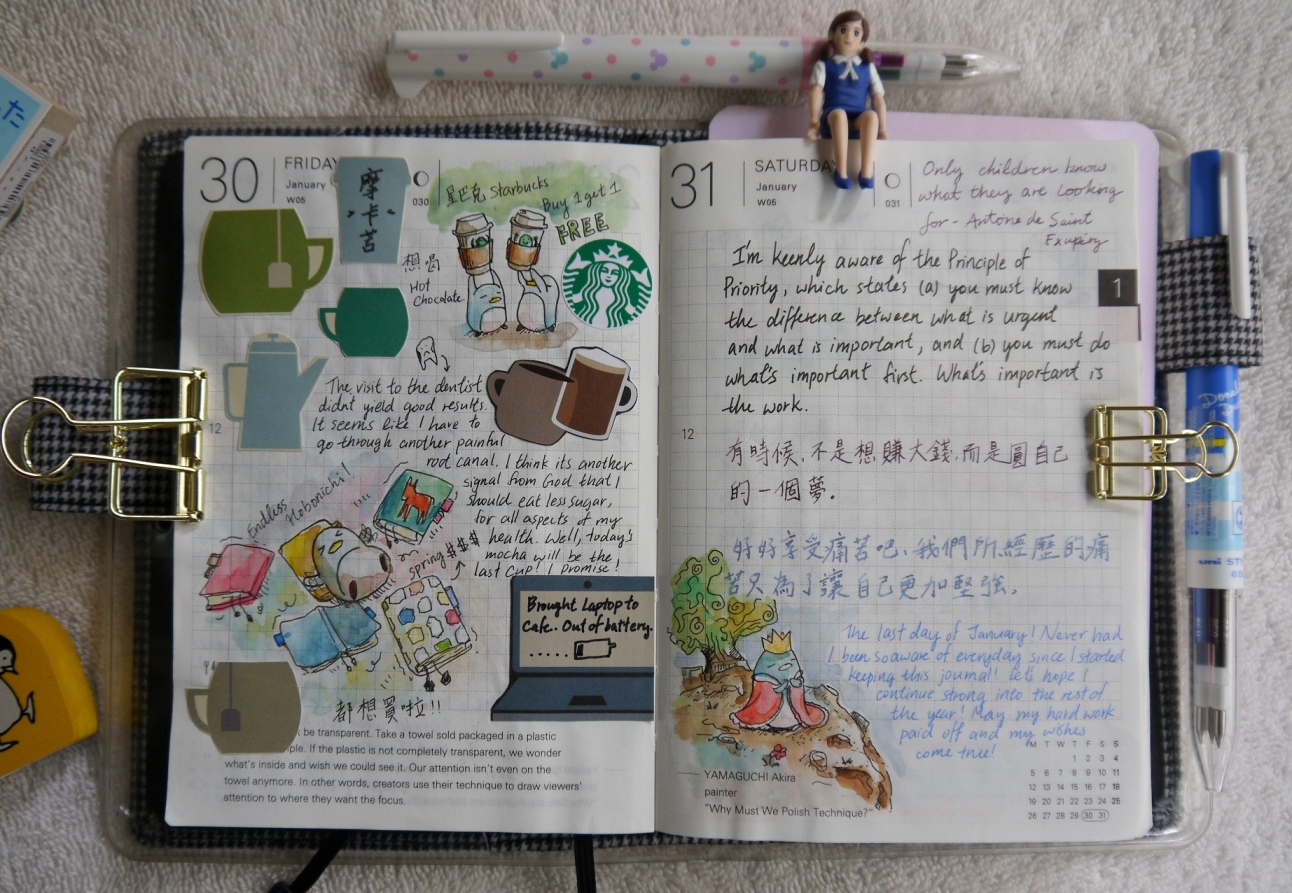 た
30
FRIDAY
January
W05
030
摩
卡
苦
星巴克 Starbucks
Buy 1 get 1
FREE
想喝
Hot
Chocolate
The visit to the dentist
didnt yield good results.
It seems like I have to
go through another painful
root canal. I think its another
signal from God that I
should eat less sugar,
for all aspects of my
health. Well, today's
mocha will be the
last cup! I promise!
12
Endless
Hobonichi!
spring $$$
Brought Laptop to
Cafe. Out of battery.
.....
都想買啦!!
be transparent. Take a towel sold packaged in a plastic
ple. If the plastic is not completely transparent, we wonder
what's inside and wish we could see it. Our attention isn't even on the
towel anymore. In other words, creators use their technique to draw viewers'
attention to where they want the focus.
31
SATURDAY
January
W05
031
Only children know
what they are looking
for - Antoine de Saint
Exupéry
1
I'm keenly aware of the Principle of
Priority, which states (a) you must know
the difference between what is urgent
and what is important, and (b) you must do
what's important first. What's important is
the work.
12
有時候、不是想賺大錢、而是圓自己
的一個夢。
好好享受痛苦吧、我們所經歷的痛
苦只為了讓自己更加堅強。
The last day of January! Never had
I been so aware of everyday since I started
keeping this journal! Let's hope I
continue strong into the rest of
the year! May my hard work
paid off and my wishes
come true!
YAMAGUCHI Akira
painter
"Why Must We Polish Technique?"
M T W T F S S
1 2 3 4
5 6 7 8 9 10 11
12 13 14 15 16 17 18
19 20 21 22 23 24 25
26 27 28 29 30 31
uni